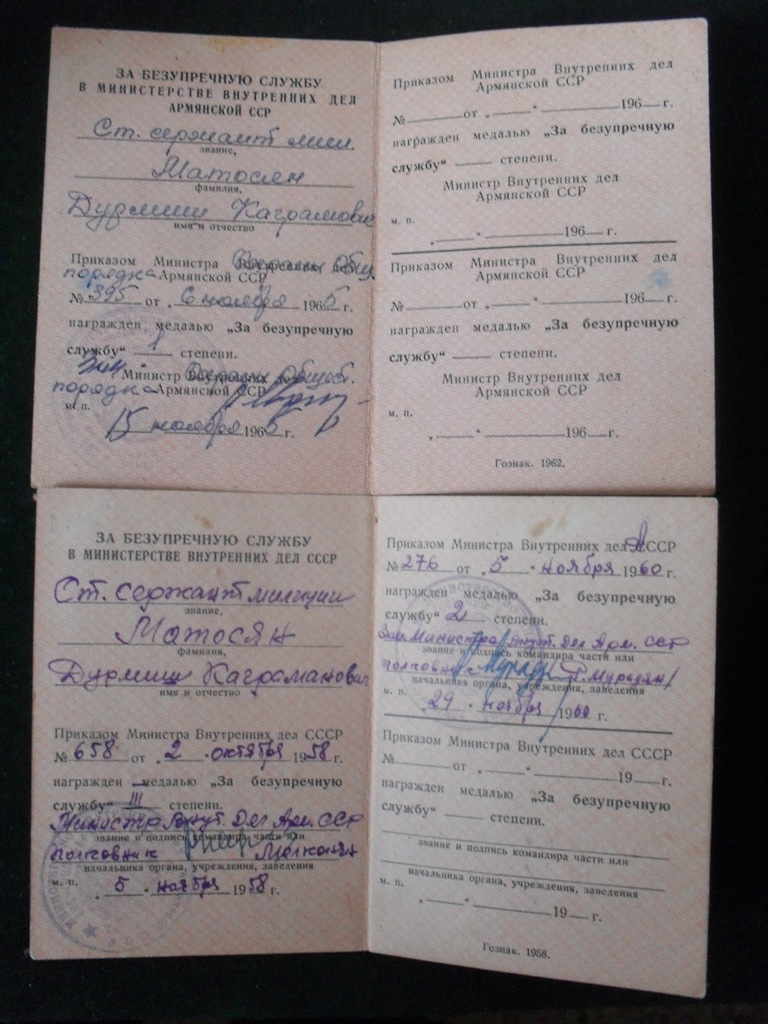 ЗА БЕЗУПРЕЧНУЮ СЛУЖБУ
В МИНИСТЕРСТВЕ ВНУТРЕННИХ ДЕЛ
АРМЯНСКОЙ ССР
Ст. сержант мил.
звание,
Матосян
фамилия,
Дурмиш Каграмович
имя и отчество
Приказом Министра Охраны Общ.
порядка Армянской ССР
№ 395 от 6 ноября 1965 г.
награжден медалью „За безупречную
службу“ 1 степени.
Зам. Министр Внутренних дел Охраны Обществ.
порядка Армянской ССР
м. п.
15 ноября 1965 г.
Приказом Министра Внутренних дел
Армянской ССР
№ от „ “ 196 г.
награжден медалью „За безупречную
службу“ степени.
Министр Внутренних дел
Армянской ССР
м. п.
„ “ 196 г.
Приказом Министра Внутренних дел
Армянской ССР
№ от „ “ 196 г.
награжден медалью „За безупречную
службу“ степени.
Министр Внутренних дел
Армянской ССР
м. п.
„ “ 196 г.
Гознак. 1962.
ЗА БЕЗУПРЕЧНУЮ СЛУЖБУ
В МИНИСТЕРСТВЕ ВНУТРЕННИХ ДЕЛ СССР
Ст. сержант милиции
звание,
Матосян
фамилия,
Дурмиш Каграманович
имя и отчество
Приказом Министра Внутренних дел СССР
№ 658 от „ 2 “ октября 1958 г.
награжден медалью „За безупречную
службу“ III степени.
Министра Внут. Дел Арм. ССР
звание и подпись командира части или
полковник Мелконян
начальника органа, учреждения, заведения
м. п. „ 5 “ ноября 1958 г.
Приказом Министра Внутренних дел АССР
№ 276 от „ 5 “ ноября 1960 г.
награжден медалью „За безупречную
службу“ 2 степени.
Зам Министра Внут. Дел Арм. ССР
звание и подпись командира части или
полковник Г. Мурадян/
начальника органа, учреждения, заведения
м. п. „ 29 “ ноября 1960 г.
Приказом Министра Внутренних дел СССР
№ от „ “ 19 г.
награжден медалью „За безупречную
службу“ степени.
звание и подпись командира части или
начальника органа, учреждения, заведения
м. п.
„ “ 19 г.
Гознак. 1958.